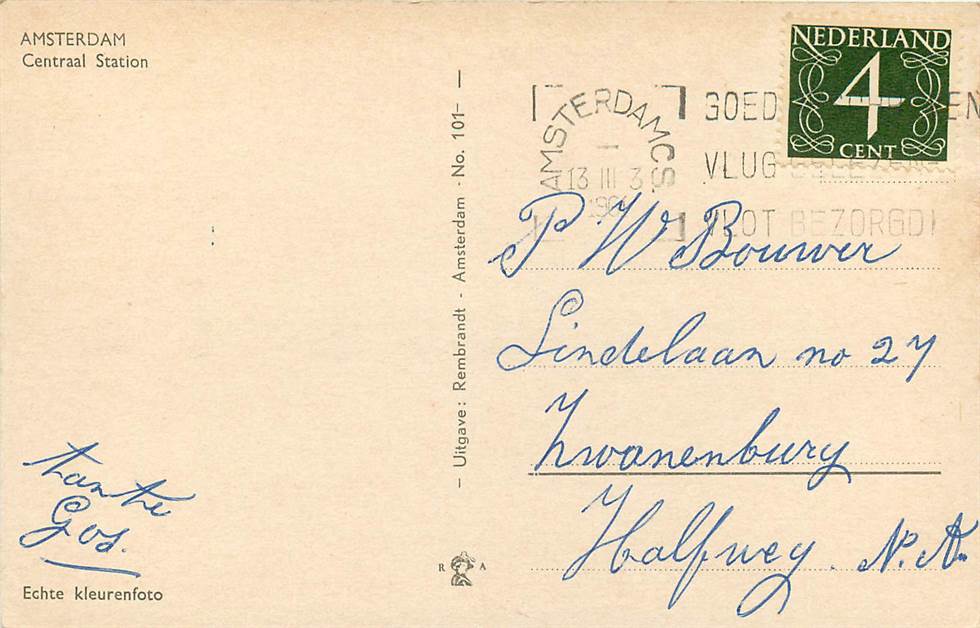 AMSTERDAM
Centraal Station
tante
Gos.
Echte kleurenfoto
— Uitgave: Rembrandt - Amsterdam - No. 101 —
R A
AMSTERDAM CS
13 III 3
GOED
VLUG
VLOT BEZORGD!
NEDERLAND
4
CENT
P W Bouwer
Lindelaan no 27
Zwanenburg
Halfweg. N.H.